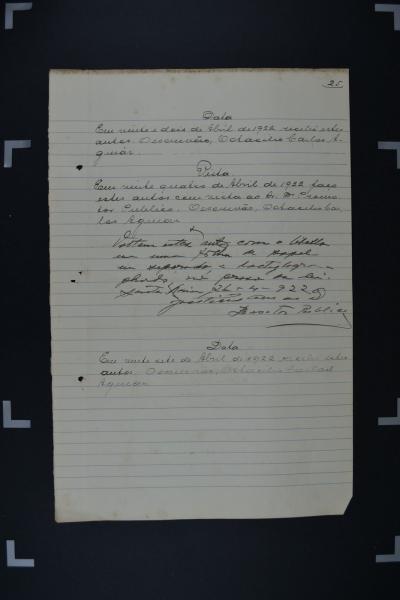 25
Data
Em vinte e dois de Abril de 1922 recebi estes
autos. O escrivão, Octacilio Carlos A-
guiar.
Vista
Em vinte quatro de Abril de 1922 faço
estes autos com vista ao Dr. Promo-
tor Publico. O escrivão, Octacilio Car-
los Aguiar
Voltem estes autos com o libello
em uma folha de papel
em separado e dactylogra-
phado,
26-4-922
Promotor Publico
Data
Em vinte sete de Abril de 1922 recebi estes
autos. O escrivão, Octacilio Carlos
Aguiar